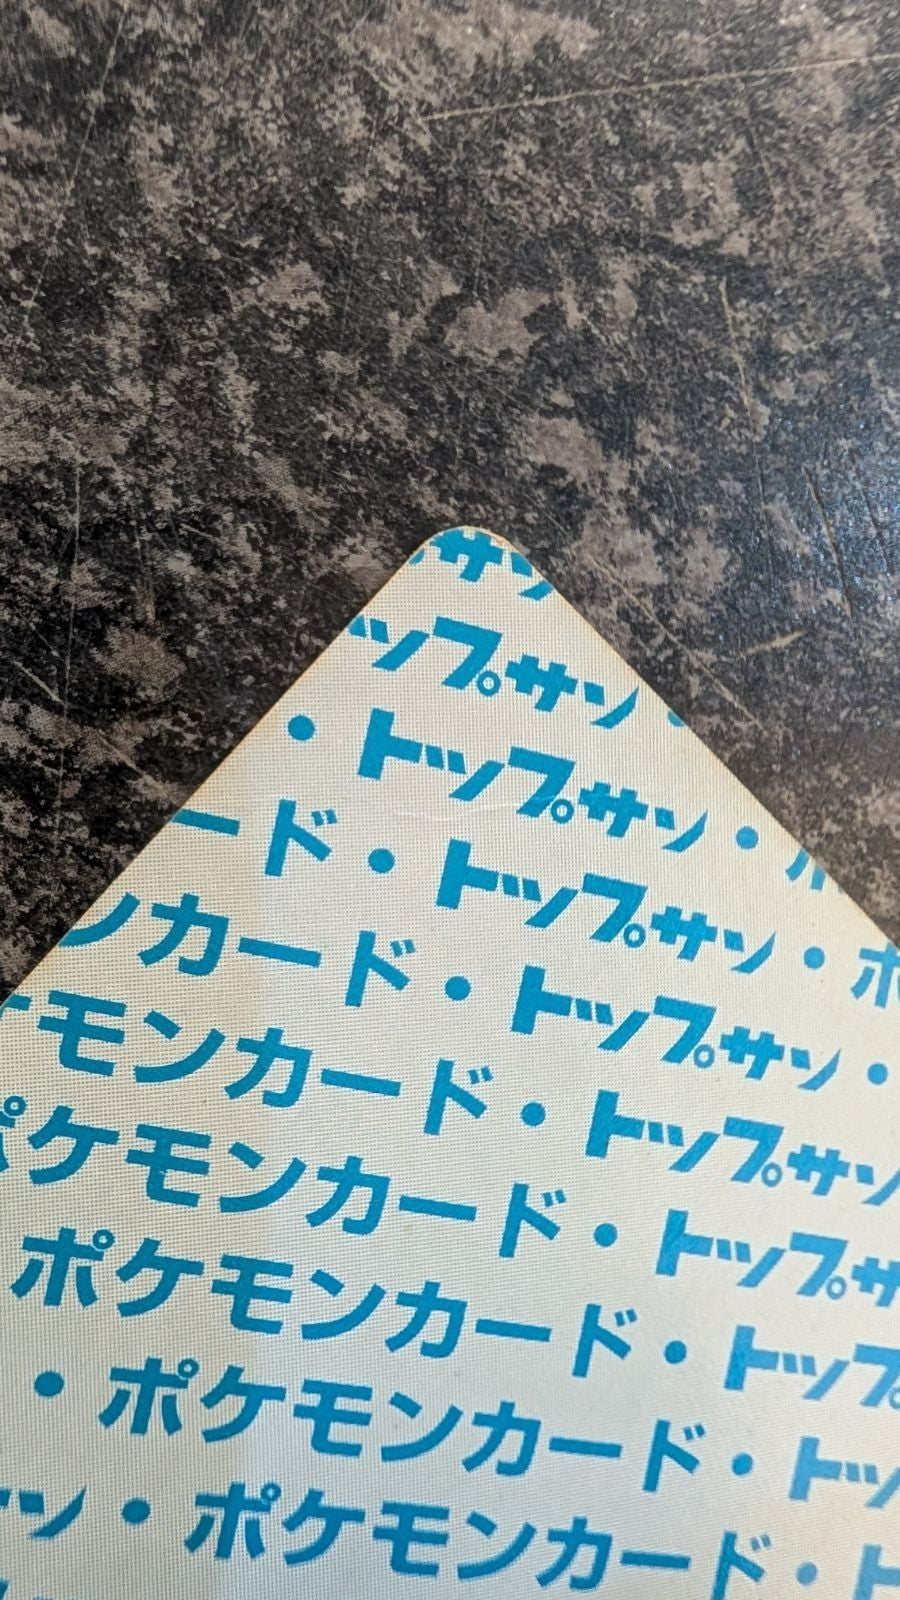 サン
ップサン・
・トップサン・
ード・トップサン・ポ
ンカード・トップサン・
ケモンカード・トップサン
ポケモンカード・トップサ
ポケモンカード・トップ
・ポケモンカード・トッ
サン・ポケモンカード・ト